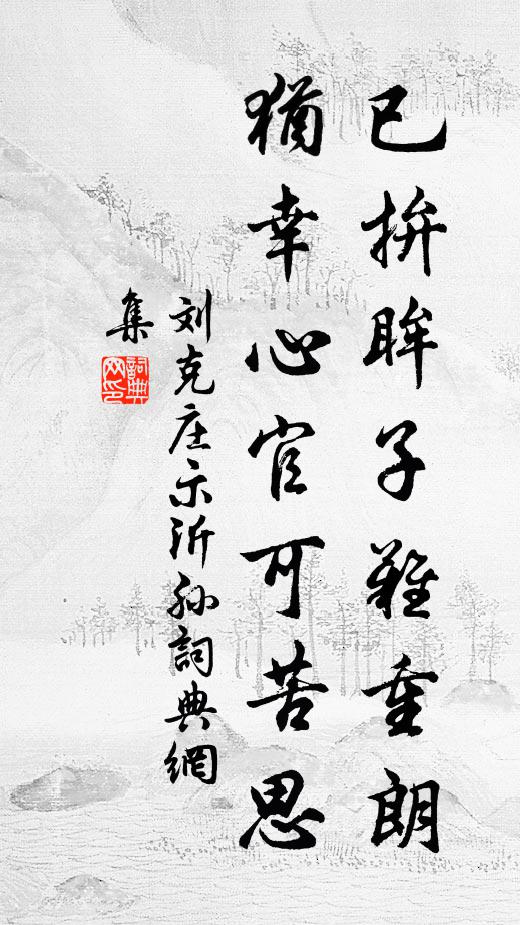 已拚眸子難重朗
猶幸心官可苦思
刘克庄示沂孙詞典網
集
詞典网印